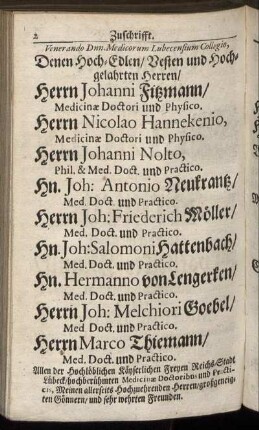 2 Zuschrifft.
Venerando Dnn. Medicorum Lubecensium Collegio,
Denen Hoch-Edlen/ Vesten und Hoch-
gelahrten Herren/
Herrn Johanni Fitzmann/
Medicinæ Doctori und Physico.
Herrn Nicolao Hannekenio,
Medicinæ Doctori und Physico.
Herrn Johanni Nolto,
Phil. & Med. Doct. und Practico.
Hn. Joh: Antonio Neukrantz/
Med. Doct. und Practico.
Herrn Joh: Friederich Möller/
Med. Doct. und Practico.
Hn. Joh: Salomoni Hattenbach/
Med. Doct. und Practico.
Hn. Hermanno von Lengerken/
Med. Doct. und Practico.
Herrn Joh: Melchiori Goebel/
Med. Doct. und Practico.
Herrn Marco Thiemann/
Med. Doct. und Practico.
Allen der Hochlöblichen Käyserlichen Freyen Reichs-Stadt
Lübeck/ hochberühmten Medicinæ Doctoribus und Practi-
cis, Meinen allerseits Hochzuehrenden Herren/ großgeneig-
ten Gönnern/ und sehr wehrten Freunden.